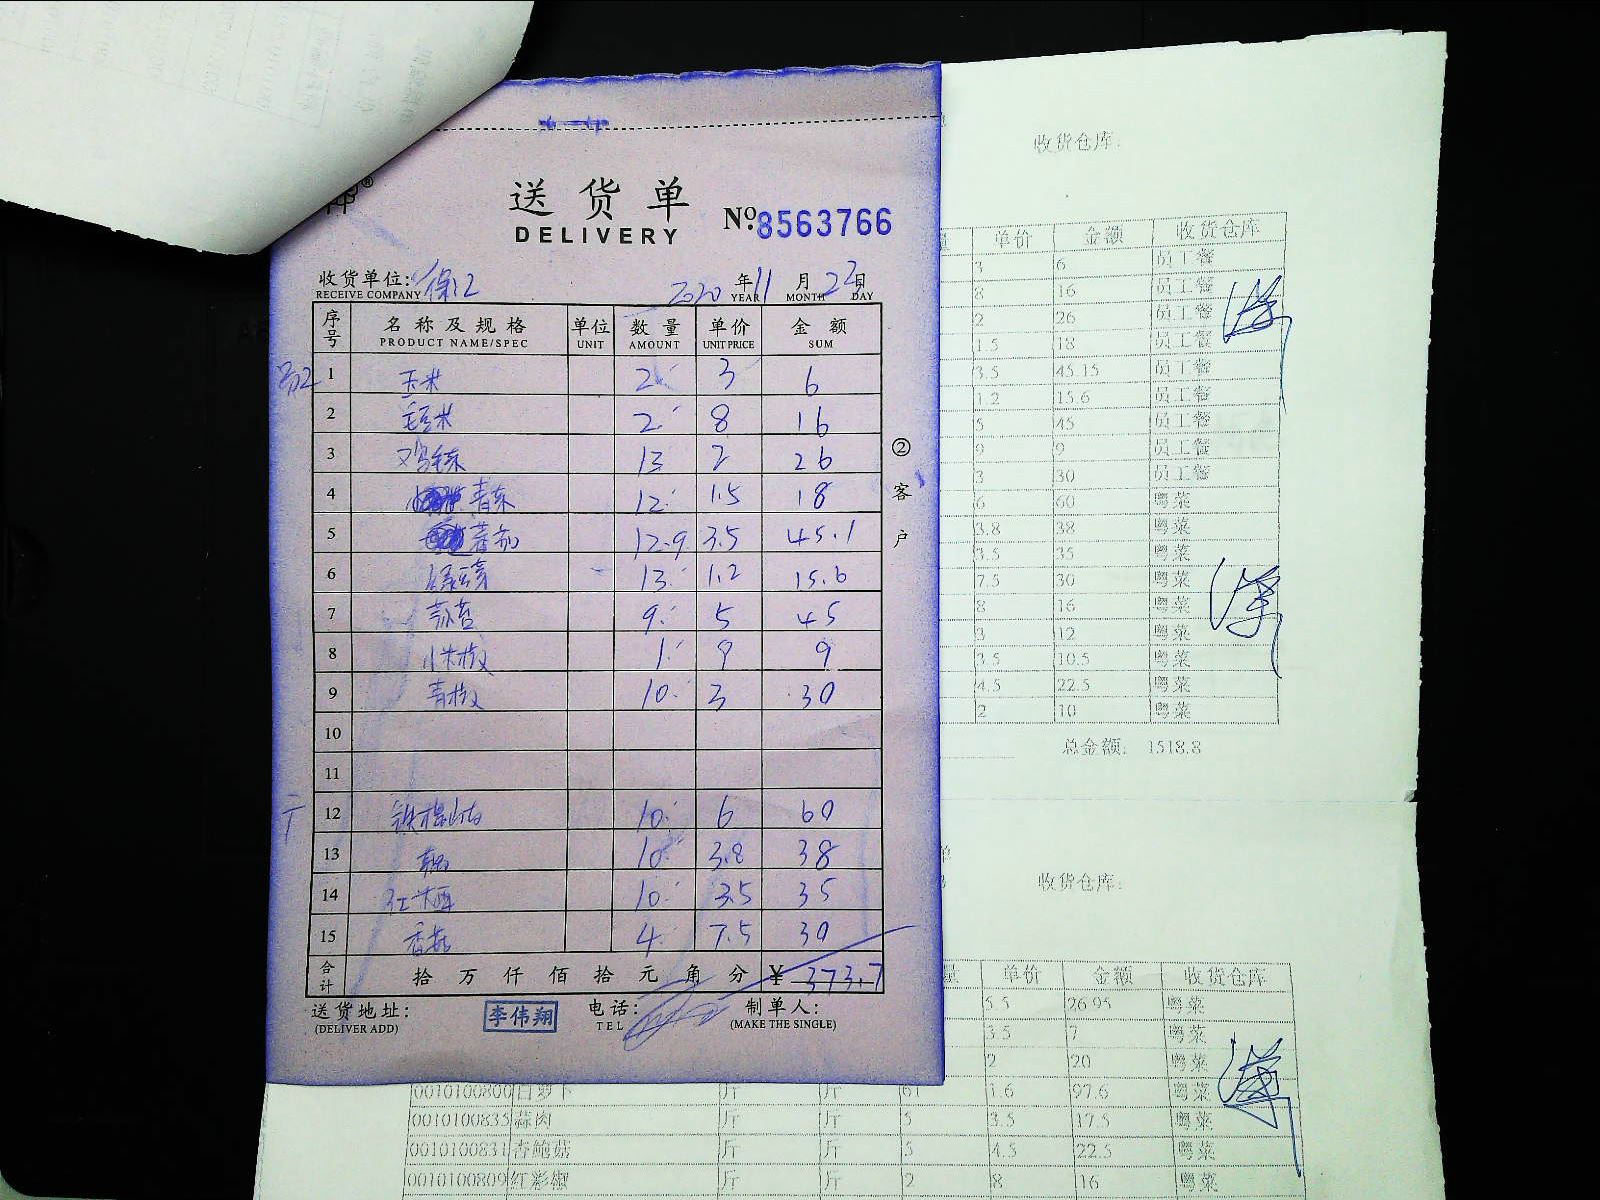 送货单
DELIVERY
№:8563766
收货单位: 徐汇 2020 年 11 月 22 日
RECEIVE COMPANY YEAR MONTH DAY
序号 名称及规格 单位 数量 单价 金额
PRODUCT NAME/SPEC UNIT AMOUNT UNIT PRICE SUM
1 玉米 2 3 6
2 毛豆米 2 8 16
3 鸡毛菜 13 2 26
4 青菜 12 1.5 18
5 蕃茄 12.9 3.5 45.1
6 13 1.2 15.6
7 蒜苔 9 5 45
8 小米椒 1 9 9
9 青椒 10 3 30
10
11
12 铁棍山药 10 6 60
13 10 3.8 38
14 10 3.5 35
15 香菇 4 7.5 30
合计 拾 万 仟 佰 拾 元 角 分 ¥ 373.7
送货地址: 李伟翔 电话: 制单人:
(DELIVER ADD) TEL (MAKE THE SINGLE)
②客户
收货仓库:
单价 金额 收货仓库
3 6 员工餐
8 16 员工餐
2 26 员工餐
1.5 18 员工餐
3.5 45.15 员工餐
1.2 15.6 员工餐
5 45 员工餐
9 9 员工餐
3 30 员工餐
6 60 粤菜
3.8 38 粤菜
3.5 35 粤菜
7.5 30 粤菜
8 16 粤菜
3 12 粤菜
3.5 10.5 粤菜
4.5 22.5 粤菜
2 10 粤菜
总金额: 1518.8
收货仓库:
单价 金额 收货仓库
5.5 26.95 粤菜
3.5 7 粤菜
2 20 粤菜
0010100800 白萝卜 斤 斤 61 1.6 97.6 粤菜
0010100835 蒜肉 斤 斤 5 3.5 17.5 粤菜
0010100831 杏鲍菇 斤 斤 5 4.5 22.5 粤菜
0010100809 红彩椒 斤 斤 2 8 16 粤菜